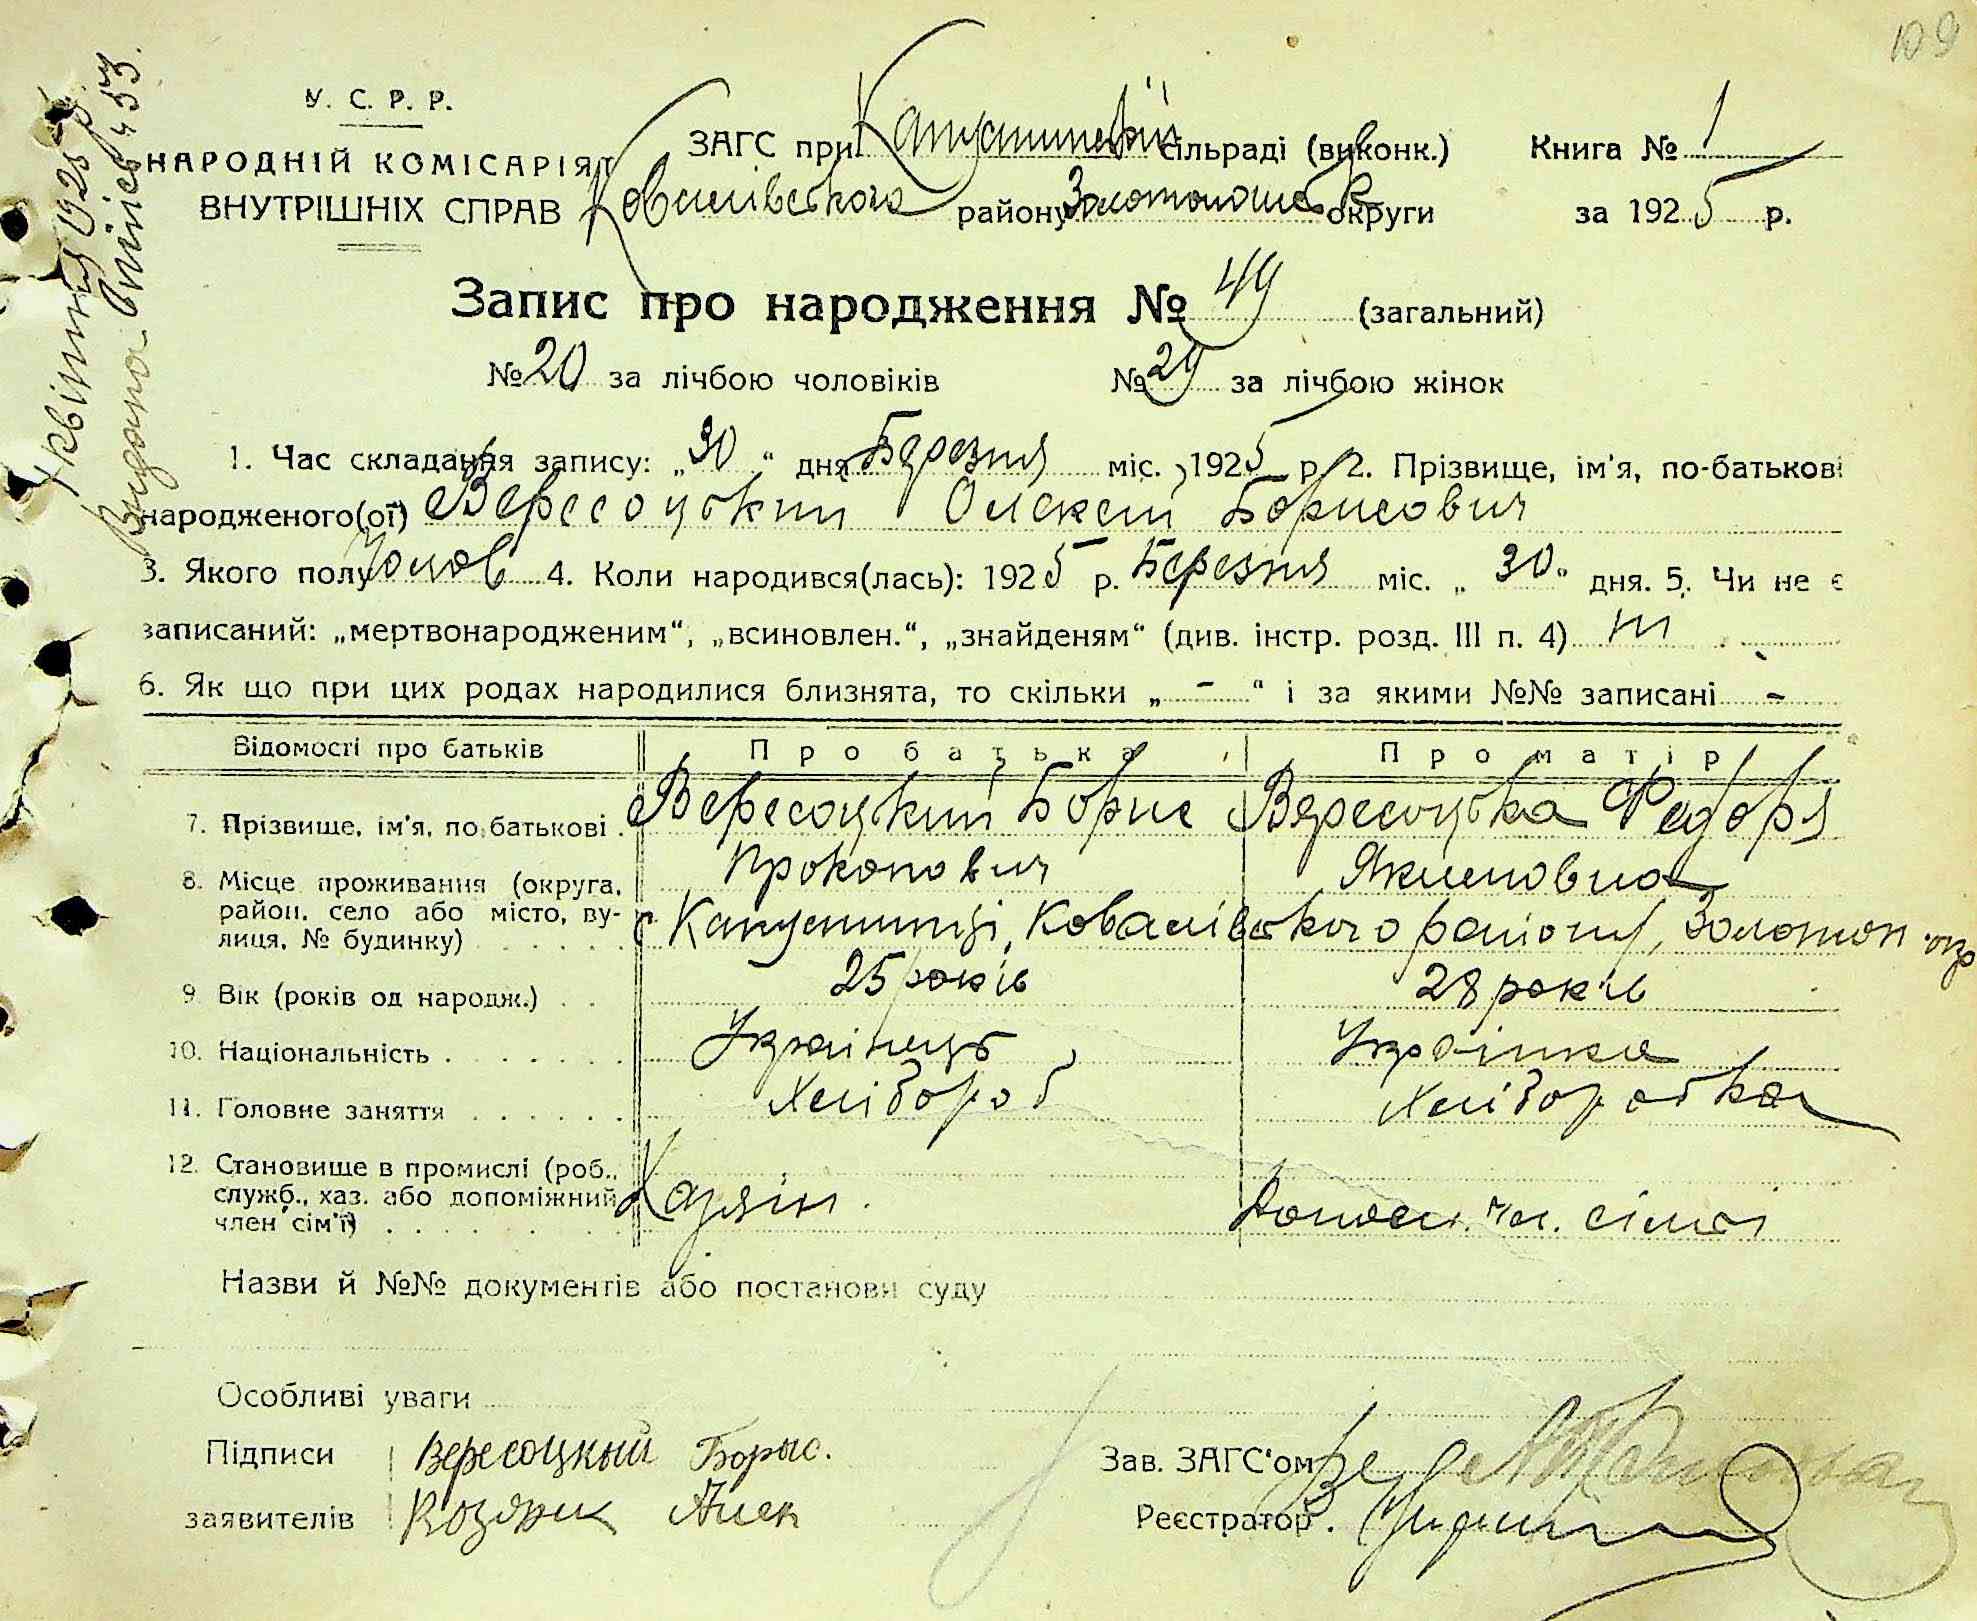 109
У. С. Р. Р.
НАРОДНІЙ КОМІСАРІЯТ
ВНУТРІШНІХ СПРАВ
ЗАГС при Капустинській сільраді (виконк.)
Ковалівського району Золотонош округи
Книга № 1
за 1925 р.
Запис про народження № 49 (загальний)
№ 20 за лічбою чоловіків № 29 за лічбою жінок
1. Час складання запису: „30“ дня Березня міс. 1925 р. 2. Прізвище, ім'я, по-батькові
народженого(ої) Вересоцький Олексій Борисович
3. Якого полу Чолов 4. Коли народився(лась): 1925 р. Березня міс. „30“ дня. 5. Чи не є
записаний: „мертвонародженим“, „всиновлен.“, „знайденям“ (див. інстр. розд. III п. 4) ні
6. Як що при цих родах народилися близнята, то скільки „ - “ і за якими №№ записані -
Відомості про батьків Про батька Про матір
7. Прізвище, ім'я, по батькові Вересоцький Борис Вересоцька Федора
Прокопович Якимовна
8. Місце проживання (округа, район, село або місто, вулиця, № будинку) с. Капустинці, Ковалівського району, Золотон. окр
9. Вік (років од народж.) 25 років 28 років
10. Національність Українець Українка
11. Головне заняття Хлібороб Хліборобка
12. Становище в промислі (роб., служб., хаз. або допоміжний член сім'ї) Хазяїн. Допом. чл. сімї
Назви й №№ документів або постанови суду
Особливі уваги
Підписи Вересоцкый Борыс.
заявителів Козярик
Зав. ЗАГС'ом
Реєстратор
квітня 1925 р.
Видана випись